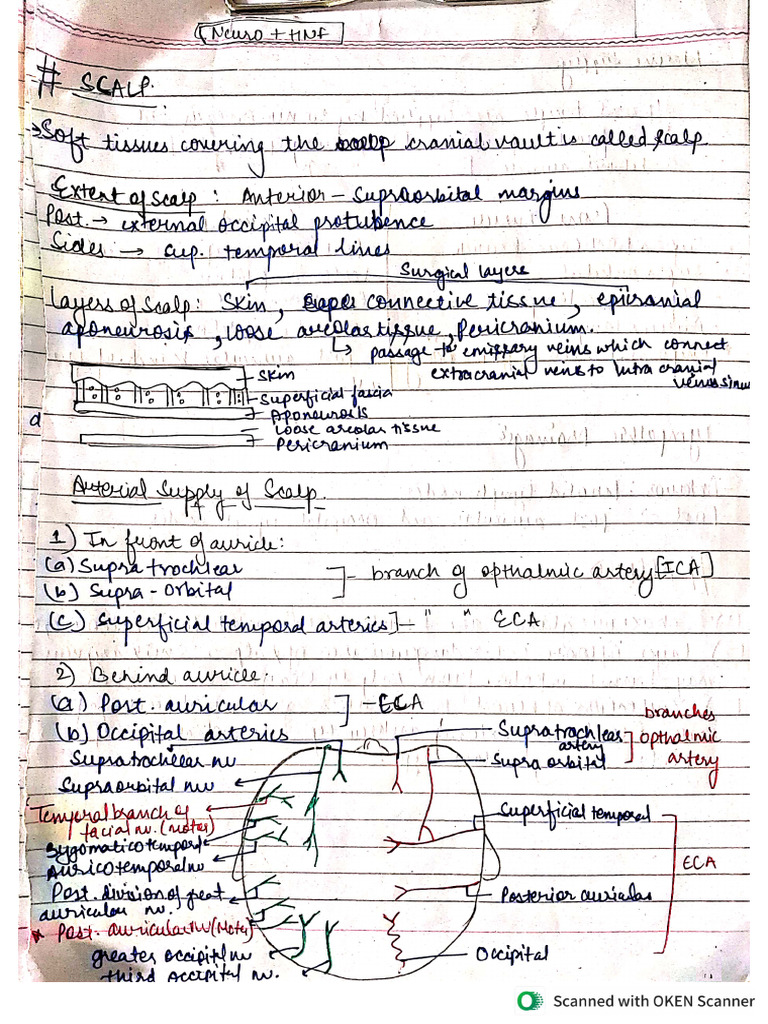 Neuro + HNF
# SCALP.
→ Soft tissues covering the scalp cranial vault is called scalp.
Extent of scalp : Anterior - Supraorbital margins
Post. → external occipital protubence
Sides → sup. temporal lines
Surgical layers
Layers of scalp: Skin, connective tissue, epicranial
aponeurosis, loose areolar tissue, Pericranium.
↳ passage to emissary veins which connect
extracranial veins to Intra cranial
venus sinus
Skin
Superficial fascia
Aponeurois
loose areolar tissue
Pericranium
d
Arterial Supply of Scalp.
1) In front of auricle:
(a) Supra trochlear
(b) Supra - orbital
]- branch of opthalmic artery [ICA]
(c) Superficial temporal arteries ]- " " ECA
2) Behind auricle:
(a) Post. auricular
(b) Occipital arteries
] - ECA
Supratrochlear nv
Supraorbital nv
Temporal branch of
facial nv. (motor)
Zygomaticotemporal
Auricotemporal nv
Post. division of great
auricular nv.
* Post. auricular nv (Motor)
greater occipital nv
third occipital nv.
Supratrochlear
artery
Supra orbital
branches
opthalmic
artery
Superficial temporal
ECA
Posterior auricular
Occipital
Scanned with OKEN Scanner